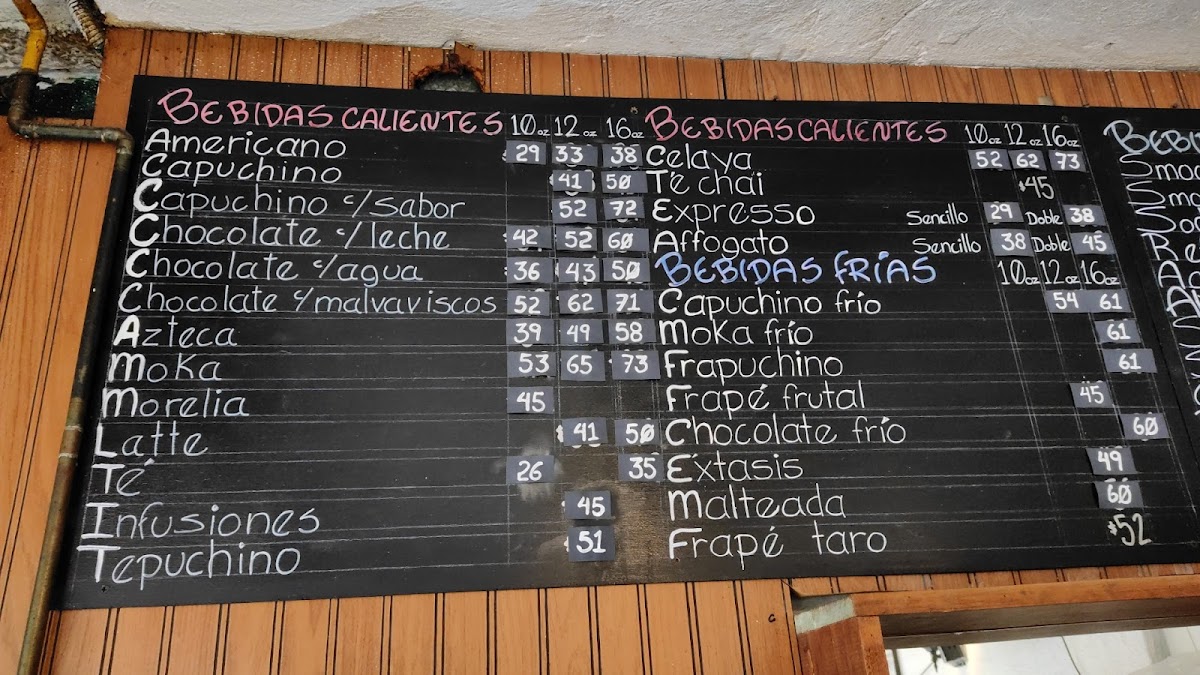 BEBIDAS CALIENTES 10oz 12oz 16oz
Americano 29 33 38
Capuchino 41 50
Capuchino c/sabor 52 72
Chocolate c/leche 42 52 60
Chocolate c/agua 36 43 50
Chocolate c/malvaviscos 52 62 71
Azteca 39 49 58
Moka 53 65 73
Morelia 45
Latte $41 50
Té 26 35
Infusiones 45
Tepuchino 51
BEBIDAS CALIENTES 10oz 12oz 16oz
Celaya 52 62 73
Té chai $45
Expresso Sencillo 29 Doble 38
Affogato Sencillo 38 Doble 45
BEBIDAS FRÍAS 10oz 12oz 16oz
Capuchino frío 54 61
Moka frío 61
Frapuchino 61
Frapé frutal 45
Chocolate frío 60
Éxtasis 49
Malteada 60
Frapé taro $52